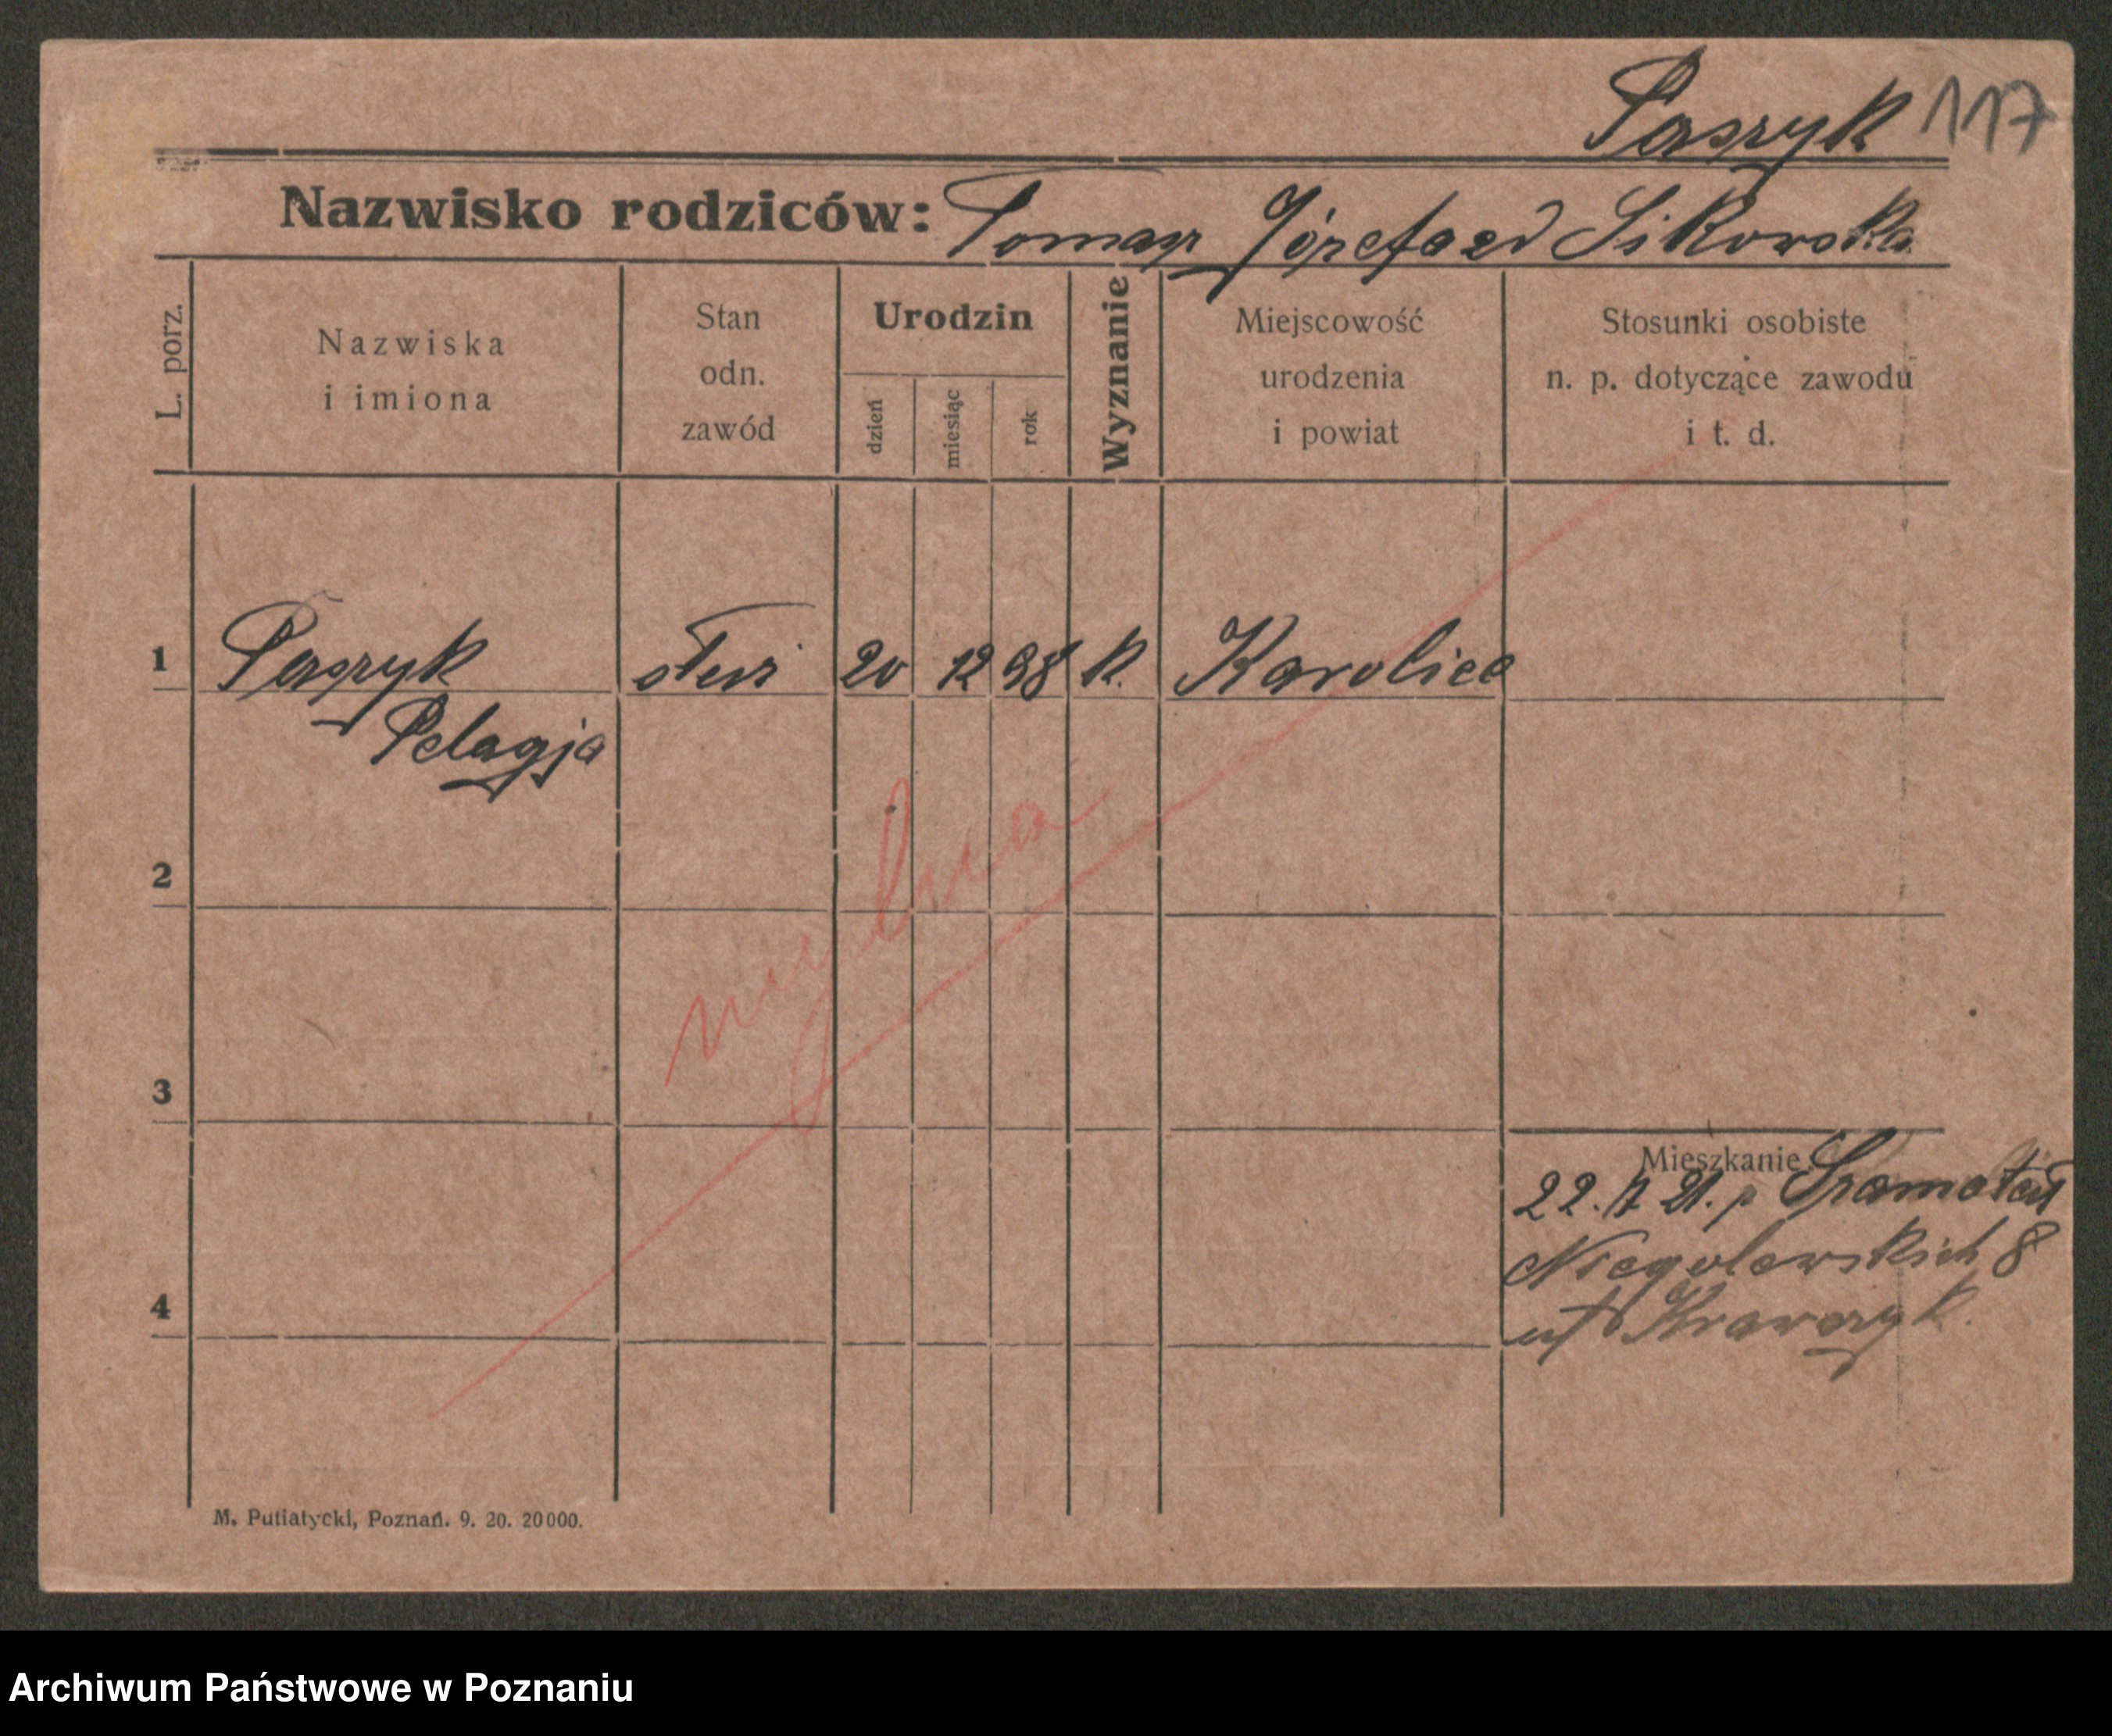 Paszyk 117
Nazwisko rodziców: Tomasz Józefa zd Sikorska
L. porz.
Nazwiska
i imiona
Stan
odn.
zawód
Urodzin
dzień
miesiąc
rok
Wyznanie
Miejscowość
urodzenia
i powiat
Stosunki osobiste
n. p. dotyczące zawodu
i t. d.
1 Paszyk służ 20 12 98 k. Karolice
Pelagja
mylna
2
3
4
Mieszkanie:
22. 21. p Szamotuł
Niegolewskich 8
Krawczyk.
M. Putiatycki, Poznań. 9. 20. 20000.
Archiwum Państwowe w Poznaniu